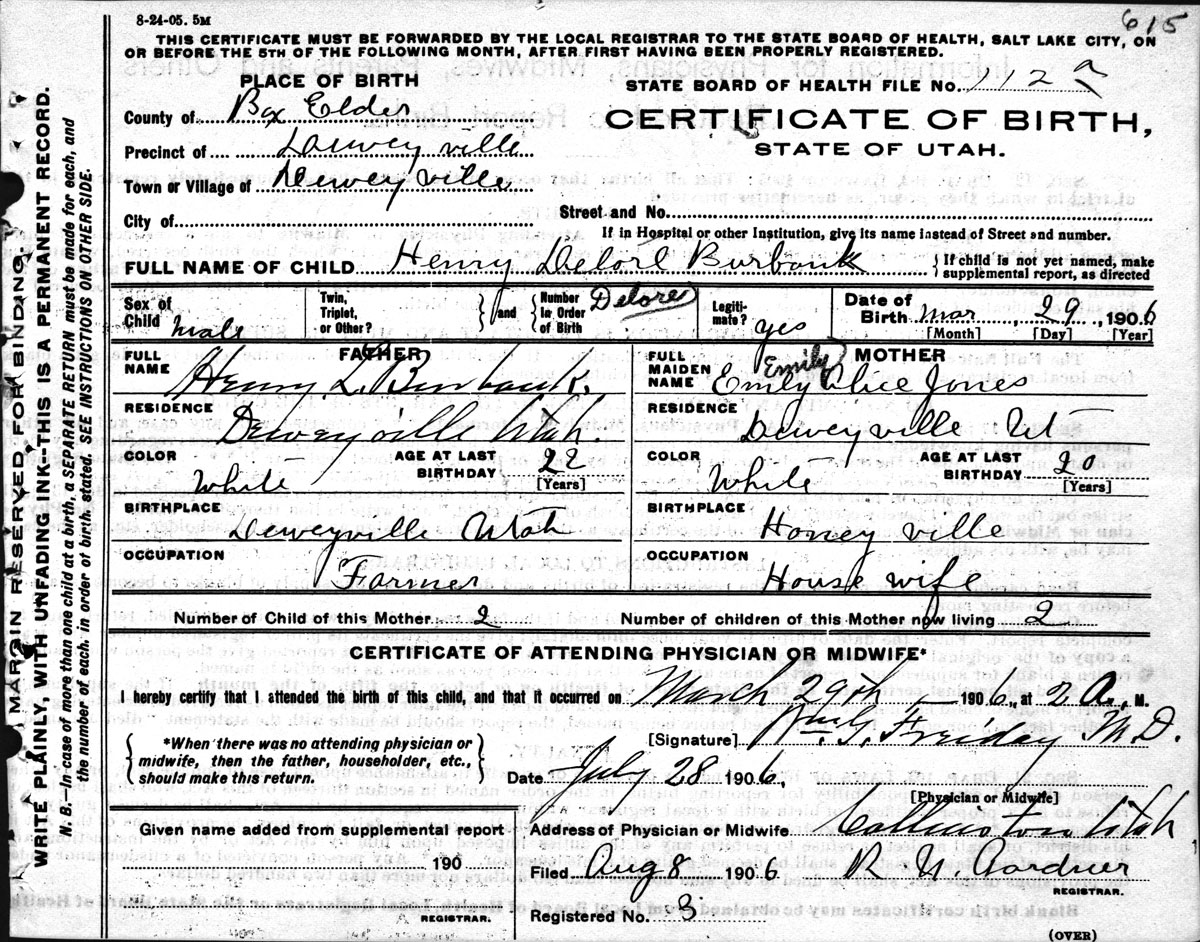 8-24-05. 5M
615
THIS CERTIFICATE MUST BE FORWARDED BY THE LOCAL REGISTRAR TO THE STATE BOARD OF HEALTH, SALT LAKE CITY, ON
OR BEFORE THE 5TH OF THE FOLLOWING MONTH, AFTER FIRST HAVING BEEN PROPERLY REGISTERED.
PLACE OF BIRTH
STATE BOARD OF HEALTH FILE No. 112a
County of Box Elder
CERTIFICATE OF BIRTH,
STATE OF UTAH.
Precinct of Deweyville
Town or Village of Deweyville
City of
Street and No.
If in Hospital or other Institution, give its name instead of Street and number.
FULL NAME OF CHILD Henry Delore Burbank
{If child is not yet named, make
supplemental report, as directed
Sex of Child Male
Twin, Triplet, or Other?
and
Number In Order of Birth
Delore
Legitimate? yes
Date of Birth Mar 29, 1906
[Month] [Day] [Year]
FULL NAME FATHER
Henry L. Burbank.
RESIDENCE
Deweyville Utah.
COLOR White
AGE AT LAST BIRTHDAY 22
[Years]
BIRTHPLACE
Deweyville Utah
OCCUPATION
Farmer
FULL MAIDEN NAME MOTHER
Emily
Emily Alice Jones
RESIDENCE
Deweyville Ut
COLOR White
AGE AT LAST BIRTHDAY 20
[Years]
BIRTHPLACE
Honeyville
OCCUPATION
House wife
Number of Child of this Mother 2
Number of children of this Mother now living 2
CERTIFICATE OF ATTENDING PHYSICIAN OR MIDWIFE*
I hereby certify that I attended the birth of this child, and that it occurred on March 29th 1906, at 2 A. M.
{*When there was no attending physician or
midwife, then the father, householder, etc.,
should make this return.}
[Signature] Wm. G. Friday M.D.
Date July 28 1906
[Physician or Midwife]
Given name added from supplemental report
190
REGISTRAR.
Address of Physician or Midwife Collinston Utah
Filed Aug 8 1906 R. N. Gardner
REGISTRAR.
Registered No. 3
(OVER)
MARGIN RESERVED FOR BINDING.
WRITE PLAINLY, WITH UNFADING INK--THIS IS A PERMANENT RECORD.
N. B.—In case of more than one child at a birth, a SEPARATE RETURN must be made for each, and
the number of each, in order of birth, stated. SEE INSTRUCTIONS ON OTHER SIDE.